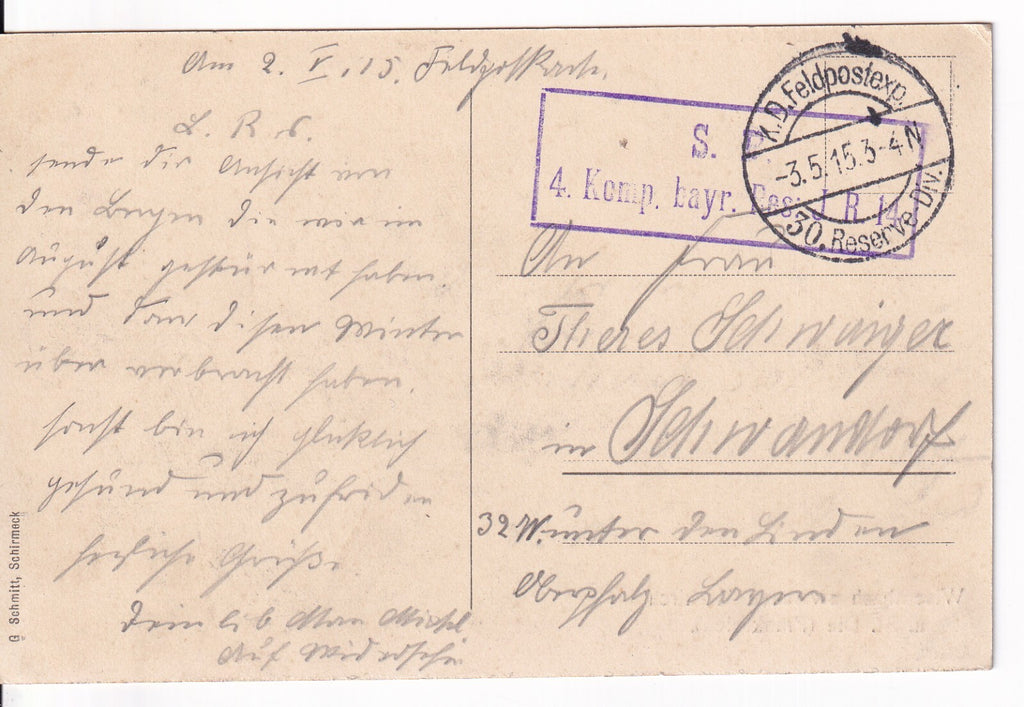 Am 2. V. 15. Feldpostkarte.
L. R. S.
sende dir Ansicht von
den Bergen die wir im
August gestürmt haben.
und dan disen Winter
über verbracht haben.
sonst bin ich glücklich
gesund und zufriden
herzliche Grüße
dein lb Man Michl
Auf Widersehn
G. Schmitt, Schirmeck
K.D. Feldpostexp.
-3.5.15. 3-4 N
30. Reserve-Div.
S. B.
4. Komp. bayr. Res. J. R. 14.
An Frau
Theres Schwaiger
in Schwandorf
32 W. unter den Linden
Oberpfalz Bayern